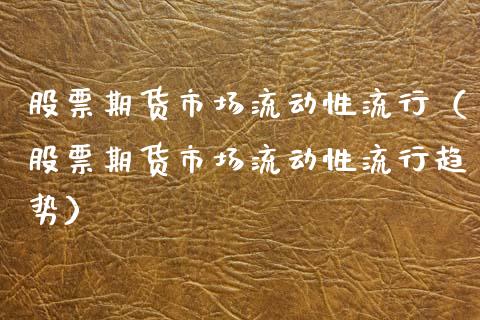 股票期货市场流动性流行（
股票期货市场流动性流行趋
势）